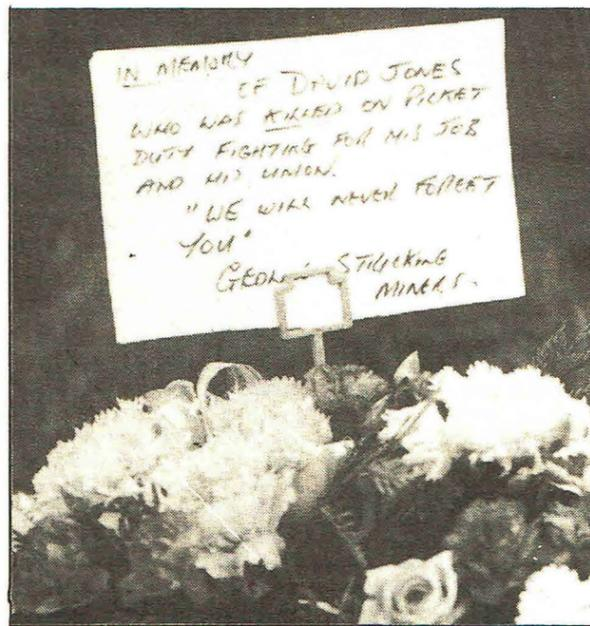 IN MEMORY
OF DAVID JONES
WHO WAS KILLED ON PICKET
DUTY FIGHTING FOR HIS JOB
AND HIS UNION.
"WE WILL NEVER FORGET
YOU"
STRICKING
MINERS.